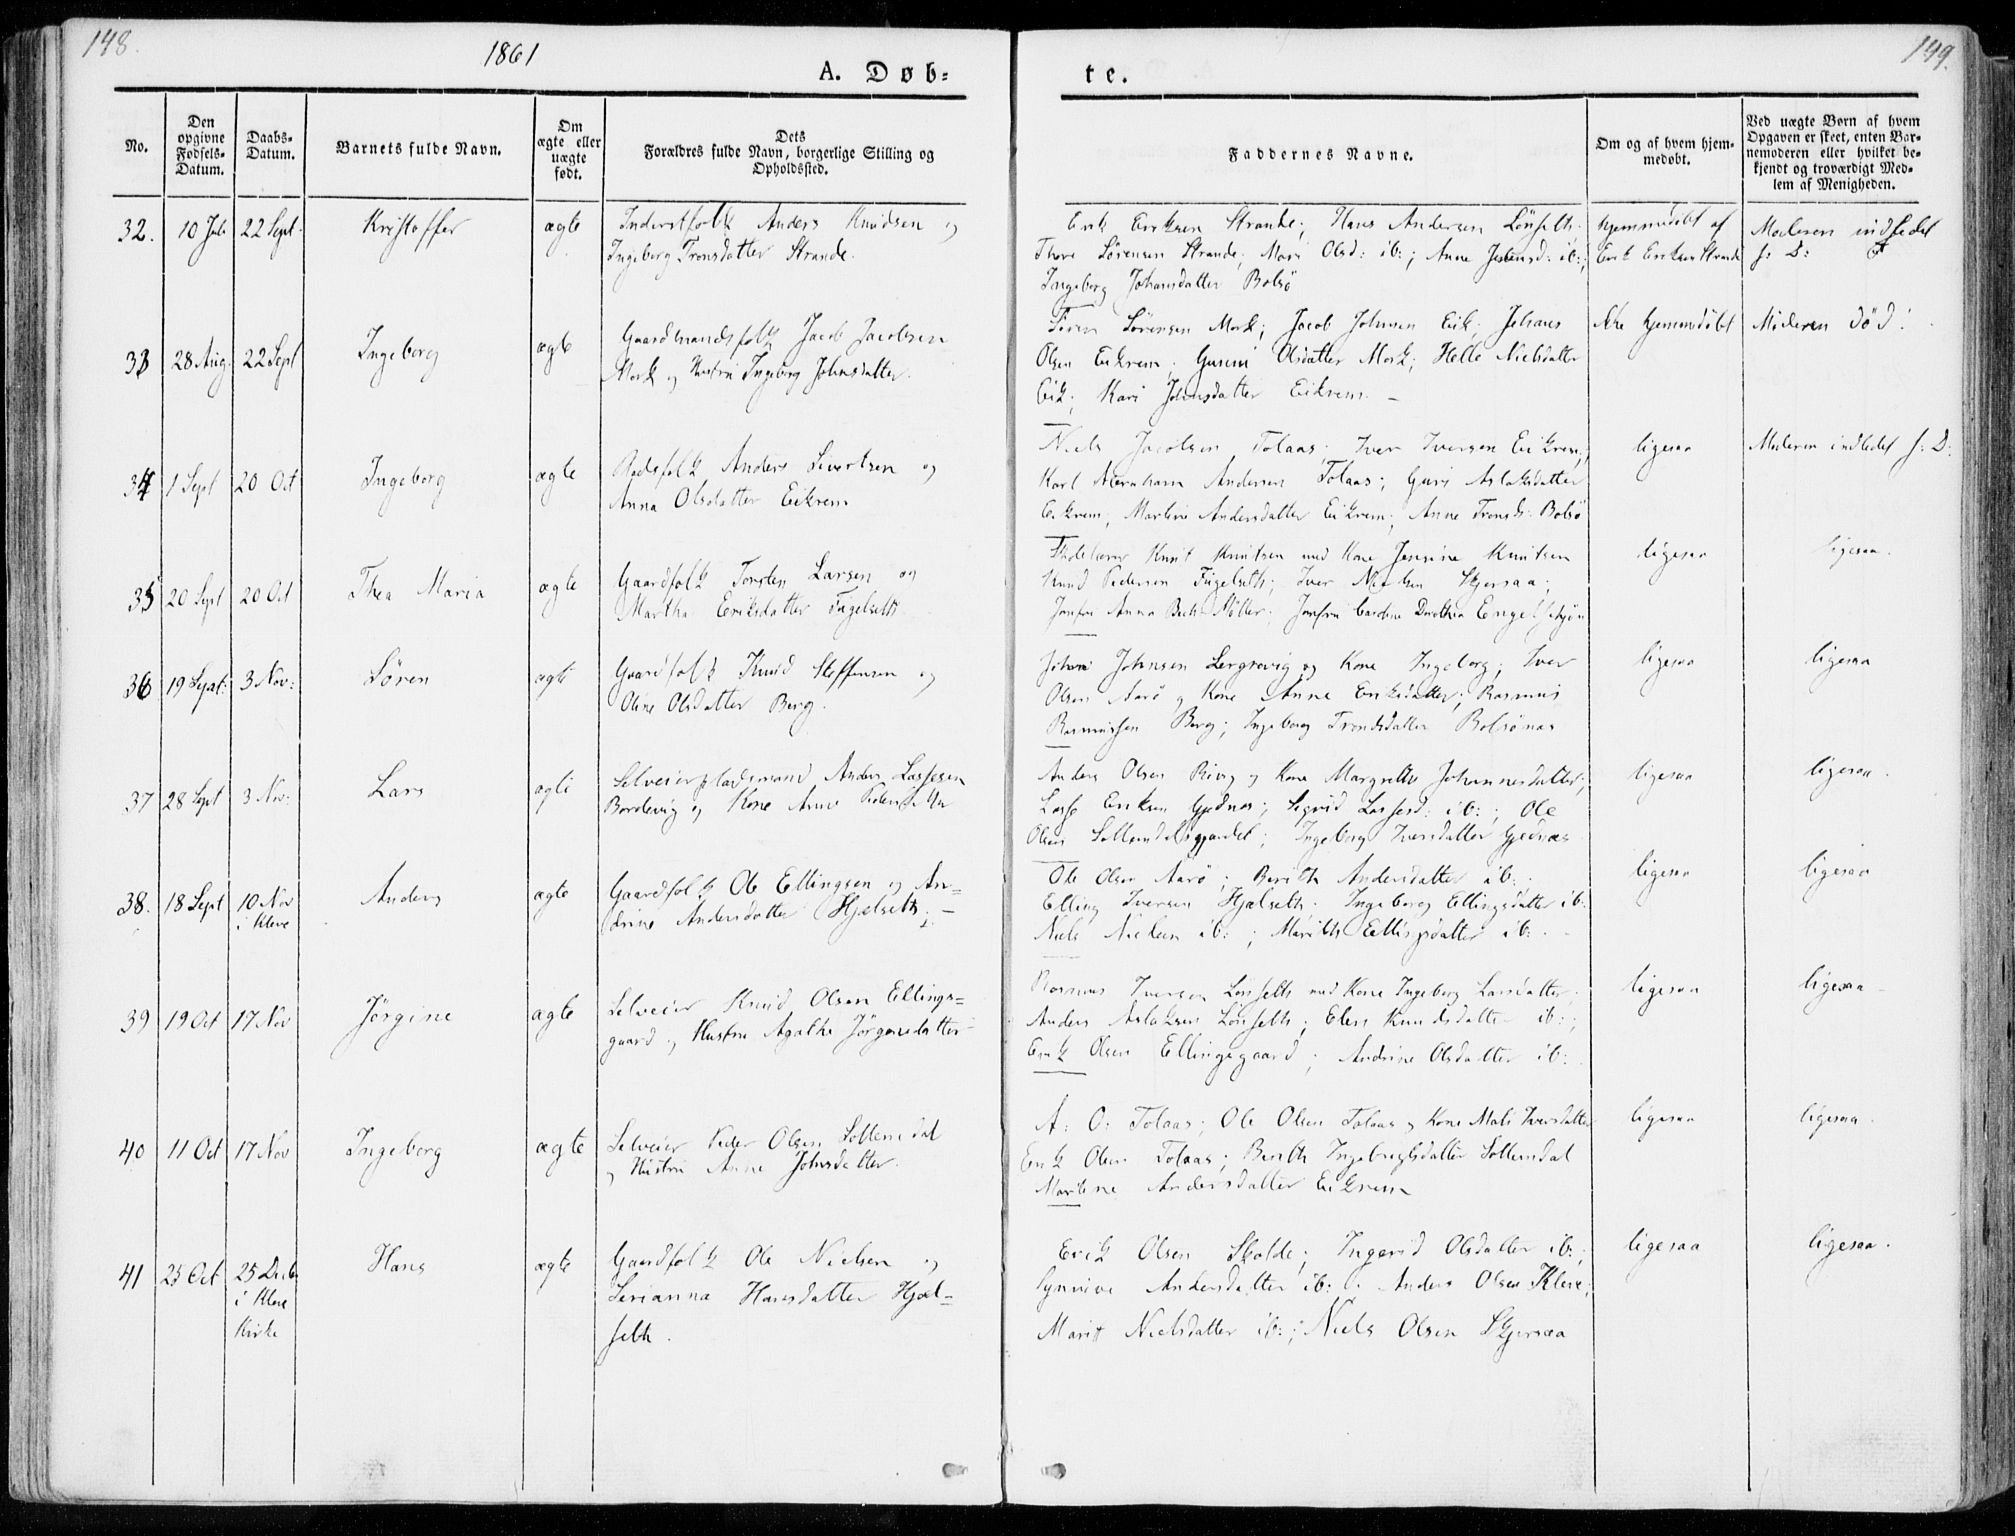 148.
149.
1861
A. Døb-
te.
No.
Den opgivne Fødsels-Datum.
Daabs-Datum.
Barnets fulde Navn.
Om ægte eller uægte født.
Dets Forældres fulde Navn, borgerlige Stilling og Opholdssted.
Faddernes Navne.
Om og af hvem hjem-medøbt.
Ved uægte Børn af hvem Opgaven er skeet, enten Bar-nemoderen eller hvilket be-kjendt og troværdigt Med-lem af Menigheden.
32.
10 Juli
22 Sept.
Kristoffer
ægte
Inderstfolk Anders Knudsen og
Ingeborg Tronsdatter Strande.
Erik Eriksen Strande; Hans Andersen Lönseth;
Thore Sörensen Strande; Mari Olsd: ib:; Anne Jensd: ib:;
Ingeborg Johansdatter Bolsö
hjemmedöbt af
Erik Eriksen Strande
Moderen indledet
s: D:
33
28 Aug.
22 Sept
Ingeborg
ægte
Gaardmandsfolk Jacob Jacobsen
Mork og Hustru Ingeborg Johnsdatter.
Sören Sörensen Mork; Jacob Johnsen Eik; Johans
Olsen Eikrem; Gunni Olsdatter Mork; Helle Nielsdatter
Eik; Kari Johnsdatter Eikrem. –
Ikke hjemmedöbt
Moderen död!
34
1 Sept
20 Oct
Ingeborg
ægte
Anders Sivertsen og
Anna Olsdatter Eikrem
Niels Jacobsen Tolaas; Iver Iversen Eikrem;
Karl Abraham Andersen Tolaas; Guri Aslaksdatter
Eikrem; Martine Andersdatter Eikrem; Anne Tronsd: Bolsö
ligesaa
Moderen indledet s: D:
35
20 Sept
20 Oct
Thea Maria
ægte
Gaardfolk Torsten Larsen og
Martha Eriksdatter Fugelseth
Skolelærer Knut Knutsen med Kone Jensine Knutsen
Knud Pedersen Fugelseth; Iver Nielsen Skjorsaa;
Jomfru Anna Bech Möller; Jomfru Caroline Dorthea Engelschjön
ligesaa
ligesaa.
36
19 Sept:
3 Nov:
Sören
ægte
Gaardfolk Knud Steffensen og
Oline Olsdatter Berg.
Johan Johnsen Lergrovig og Kone Ingeborg; Iver
Olsen Aarö og Kone Anne Eriksdatter; Rasmus
Rasmussen Berg; Ingeborg Trondsdatter Bolsönæs
ligesaa
ligesaa
37
28 Sept
3 Nov:
Lars
ægte
Selveierpladsmand Anders Lassesen
Bordevig og Kone Anne Pedersdatter
Anders Olsen Berg og Kone Margrethe Johannesdatter;
Lasse Eriksen Gjednæs; Sigrid Lassesd: ib:; Ole
Olsen Sollemdalsgjærdet; Ingeborg Iversdatter Gjednæs
ligesaa
ligesaa.
38.
18 Sept
10 Nov
i Kleve
Anders
ægte
Gaardfolk Ole Ellingsen og An-
drine Andersdatter Hjelseth. –
Ole Olsen Aarö; Berith Andersdatter ib:
Elling Iversen Hjelseth; Ingeborg Ellingsdatter ib:
Niels Nielsen ib:; Marith Ellingsdatter ib:
ligesaa
ligesaa
39
19 Oct
17 Nov
Jörgine
ægte
Selveier Knud Olsen Ellings-
gaard og Hustru Agathe Jörgensdatter
Rasmus Iversen Lönseth med Kone Ingeborg Larsdatter;
Anders Aslaksen Lönseth; Elen Knudsdatter ib:
Erik Olsen Ellingsgaard; Andrine Olsdatter ib:
ligesaa
ligesaa
40
11 Oct
17 Nov
Ingeborg
ægte
Selveier Peder Olsen Sollemdal
og Hustru Anne Johnsdatter.
A: O: Tolaas; Ole Olsen Tolaas og Kone Mali Iversdatter
Erik Olsen Tolaas; Berith Ingebrigtsdatter Sollemdal
Martine Andersdatter Eikrem
ligesaa
ligesaa.
41
23 Oct
25 Decb
i Kleve
Kirke
Hans
ægte
Gaardfolk Ole Nielsen og
Serianna Hansdatter Hjel-
seth.
Erik Olsen Skolde; Ingerid Olsdatter ib:;
Synnive Andersdatter ib:; Anders Olsen Kleve;
Marit Nielsdatter ib:; Niels Olsen Skjorsaa
ligesaa
ligesaa.